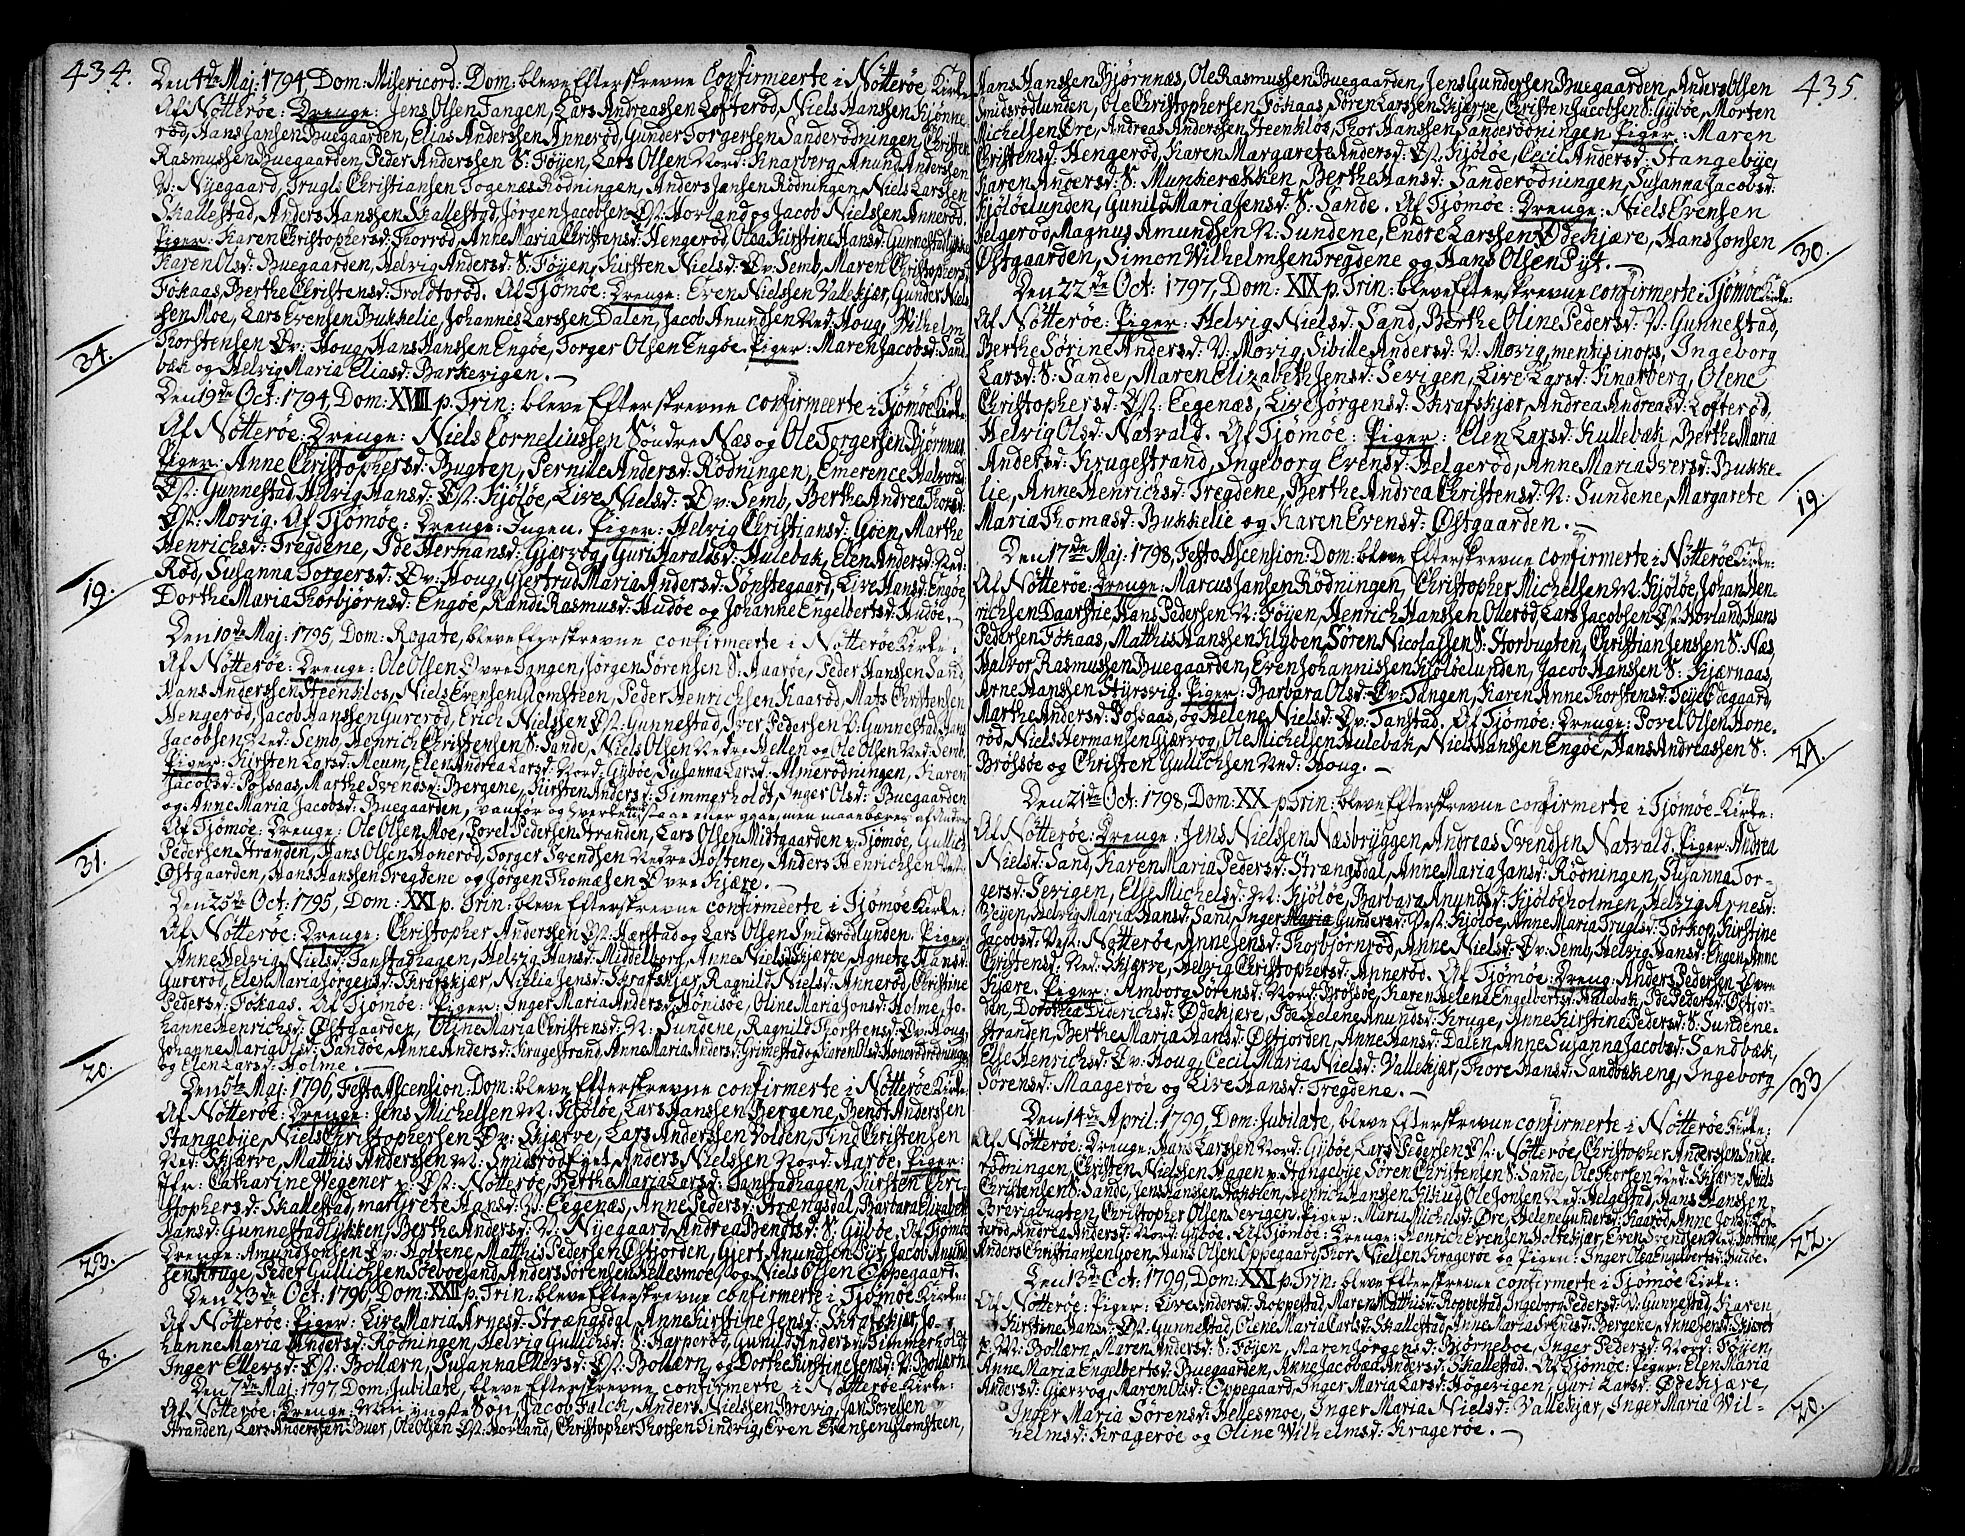 434.
Den 4de Maj: 1794, Dom: Misericord: Dom: bleve Efterskrevne Confirmeerte i Nötteröe Kirke
Af Nötteröe: Drenge: Jens Olsen Tangen, Lars Andreassen Lofteröd, Niels Hanssen Kjönne-
röd, Hans Jansen Buegaarden, Elias Anderssen Anneröd, Gunder Torgersen Sanderödningen, Christen
Rasmussen Buegaarden, Peder Anderssen S: Föyen, Lars Olsen Nord: Knarberg, Anund Andersen
V: Nyegaard, Trugls Christiansen Togenæs Rödningen, Anders Jansen Rödningen, Niels Larssen
Skallestad, Anders Hanssen Skallestad, Jörgen Jacobsen Öst: Horland og Jacob Nielssen Anneröd.
Piger: Karen Christophersd: Thorröd, Anne Maria Christensd: Hengeröd, Olea Kirstine Hansd: Gunnestad
Karen Olsd: Buegaarden, Helvig Andersd: S: Föyen, Kirsten Nielsd: Öv: Semb, Maren Christophersd:
Fökaas, Berthe Christensd: Troldtoröd. Af Tjömöe: Drenge: Even Nielssen Vallekjær, Gunder Niels-
sen Moe, Lars Evensen Bukkelie, Johannes Larssen Dalen, Jacob Anundsen Ned: Houg, Wilhelm
Thorstensen Öv: Houg, Hans Hanssen Engöe, Torger Olsen Engöe. Piger: Maren Jacobsd: Sand-
bak og Helvig Maria Eliasd: Barkevigen. —
34.
Den 19de Oct: 1794, Dom: XVIII p. Trin: bleve Efterskrevne confirmeerte i Tjömöe Kirke:
Af Nötteröe: Drenge: Niels Corneliussen Söndre Næs og Ole Torgersen Björnnæs
Piger: Anne Christophersd: Bugten, Pernille Andersd: Rödningen, Emerence Halvorsd:
Öst: Gunnestad, Helvig Hansd: Öst: Kjölöe, Live Nielsd: Öv: Semb, Berthe Andrea Thorsd:
Öst: Movig. Af Tjömöe: Drenge: Ingen. Piger: Helvig Christiansd: Goen, Marthe
Henrichsd: Tregdene, Ide Hermansd: Gjærvog, Guri Haraldsd: Hulebak, Elen Andersd: Ned:
Röd, Susanna Torgersd: Öv: Houg, Gjertrud Maria Andersd: Sönstegaard, Live Hansd: Engöe,
Dorthe Maria Thorbjörnsd: Engöe, Randi Rasmusd: Hudöe og Johanne Engelbertsd: Hudöe. —
19.
Den 10de Maj: 1795, Dom: Rogate, bleve Efterskrevne confirmeerte i Nötteröe Kirke:
Af Nötteröe: Drenge: Ole Olsen Övre Tangen, Jörgen Sörensen S: Haaröe, Peder Hanssen Sand,
Hans Anderssen Steenklos, Niels Evensen Glomsteen, Peder Henrichsen Kaaröd, Mats Christensen
Hengeröd, Jacob Hanssen Gureröd, Erich Nielssen Öst: Gunnestad, Iver Pedersen V: Gunnestad, Hans
Jacobsen Ned: Semb, Henrich Christensen S: Sande, Niels Olsen Nedre Hellen og Ole Olsen Ned: Semb.
Piger: Kirsten Larsd: Meum, Elen Andrea Larsd: Nord: Gyböe, Susanna Larsd: Almerödningen, Karen
Jacobsd: Possaas, Marthe Svendsd: Bergene, Kirsten Andersd: Timmerholdt, Inger Olsd: Buegaarden
og Anne Maria Jacobsd: Buegaarden,
Af Tjömöe: Drenge: Ole Olsen Moe, Povel Pedersen Stranden, Lars Olsen Midtgaarden p. Tjömöe, Gullich
Pedersen Stranden, Hans Olsen Honeröd, Torger Svendsen Nedre Holtene, Anders Henrichsen
Östgaarden, Hans Hanssen Tregdene og Jörgen Thomæsen Övre Kjære. —
31.
Den 25de Oct: 1795, Dom: XXI p. Trin: bleve Efterskrevne confirmeerte i Tjömöe Kirke:
Af Nötteröe: Drenge: Christopher Anderssen Öst: Hærstad og Lars Olsen Smidsrödlunden. Piger:
Anne Helvig Nielsd: Tanstadhagen, Helvig Hansd: Middelborg, Anne Nielsd: Skjærve, Agnete Hansd:
Gureröd, Elen Maria Jörgensd: Skrafskjær, Nielia Jensd: Skrafskjær, Ragnild Nielsd: Anneröd, Christine
Pedersd: Fökaas. Af Tjömöe: Piger: Inger Maria Andersd: Hönisöe, Oline Maria Jonsd: Holme, Jo-
hanne Henrichsd: Östgaarden, Oline Maria Christensd: N: Sundene, Ragnild Thorstensd: Öv: Houg,
Johanne Maria Olsd: Sandöe, Anne Andersd: Krugestrand, Anne Maria Andersd: Grimestad og Karen Olsd: Honerödrödningen
og Elen Larsd: Holme. —
20.
Den 5te Maj: 1796, Festo Ascension: Dom: bleve Efterskrevne confirmerte i Nötteröe Kirke:
Af Nötteröe: Drenge: Jens Michelsen N: Kjölöe, Lars Hanssen Bergene, Bendt Anderssen
Stangebye, Niels Christophersen Öv: Skjærve, Lars Anderssen Volden, Find Christensen
Ned: Skjærve, Matthis Anderssen N: Smidsröd, Anders Nielssen Nord: Aaröe. Piger:
Jfr: Catharine Wegener p. Öst: Nötteröe, Berthe Maria Larsd: Tanstadhagen, Kirsten Chri-
stophersd: Skallestad, Margrete Hansd: V: Eegenæs, Anne Pedersd: Strængsdal, Barbara Elizabeth
Hansd: Gunnestadlykken, Berthe Andersd: V: Nyegaard, Andrea Bendtsd: S: Gyböe. Af Tjömöe
Drenge: Amund Jonsen Öv: Holtene, Matthis Pedersen Östjorden, Gjert Anundsen Pyt, Jacob Anund-
sen Kruge, Peder Gullichsen Söeboesand, Anders Sörensen Hellesmoe og Niels Olsen Oppegaart.
23.
Den 23de Oct: 1796, Dom: XXII p. Trin: bleve Efterskrevne confirmerte i Tjömöe Kirke:
Af Nötteröe: Piger: Live Maria Arnesd: Strængsdal, Anne Kirstine Jensd: Skrafskjær, Jo-
hanne Maria Andersd: Rödningen, Helvig Gullichsd: S: Harperöd, Gunild Andersd: Timmerholdt,
Inger Ellersd: Öst: Bollærn, Susanna Ellersd: Öst: Bollærn, og Dorthe Kirstine Jensd: V: Bollærn.
8.
Den 7de Maj: 1797, Dom: Jubilate, bleve Efterskrevne confirmerte i Nötteröe Kirke:
Af Nötteröe: Drenge: Min yngste Sön Jacob Falck, Anders Nielssen Brevig, Jan Povelsen
Stranden, Lars Anderssen Buer, Ole Olsen Öst: Horland, Christopher Thorsen Tindvig, Even Evensen Glomsteen,
435.
Hans Hanssen Bjørnnæs, Ole Rasmussen Buegaarden, Jens Gundersen Buegaarden, Anders Olsen
Smidsrödlunden, Ole Christophersen Fökaas, Sören Larssen Skjerpe, Christen Jacobsen S: Gyböe, Morten
Michelsen Öre, Andreas Anderssen Steenklos, Thor Hanssen Sanderödningen. Piger: Maren
Christensd: Hengeröd, Karen Margarete Andersd: Öst: Kjölöe, Cecil Andersd: Stangebye,
Karen Andersd: S: Munkerækken, Berthe Hansd: Sanderödningen, Susanna Jacobsd:
Kjölöelunden, Gunild Maria Jensd: S: Sande. Af Tjömöe: Drenge: Niels Evensen
Helgeröd, Magnus Amundsen N: Sundene, Endre Larssen Ødekjære, Hans Jonsen
Østgaarden, Simon Wilhelmsen Tregdene og Hans Olsen Pyt. —
30.
Den 22de Oct: 1797, Dom: XIX p. Trin: bleve Efterskrevne confirmerte i Tjömöe Kirke:
Af Nötteröe: Piger: Helvig Nielsd: Sand, Berthe Oline Pedersd: V: Gunnestad,
Berthe Sörine Andersd: V: Movig, Sibille Andersd: V: Movig, mentis inops, Ingeborg
Larsd: S: Sande, Maren Elizabeth Jensd: Sevigen, Live Larsd: Knarberg, Olene
Christophersd: Öst: Eegenæs, Live Jörgensd: Skrafskjær, Andrea Andreasd: Lofteröd,
Helvig Olsd: Natvald. Af Tjömöe: Piger: Elen Larsd: Kullebak, Berthe Maria
Andersd: Krugestrand, Ingeborg Evensd: Helgeröd, Anne Maria Iversd: Bukke-
lie, Anne Henrichsd: Tregdene, Berthe Andrea Christensd: N: Sundene, Margarete
Maria Thomasd: Bukkelie og Karen Evensd: Østgaarden. —
19.
Den 17de Maj: 1798, Festo Ascension: Dom: bleve Efterskrevne confirmerte i Nötteröe Kirke:
Af Nötteröe: Drenge: Marcus Jansen Rödningen, Christopher Michelsen N: Kjölöe, Johan Hen-
richsen Daarstie, Hans Pedersen N: Föyen, Henrich Hanssen Olleröd, Lars Jacobsen Öst: Horland, Hans
Pedersen Fökaas, Matthis Hanssen Kløven, Sören Nicolaisen S: Storbugten, Christian Jenssen S: Næs,
Halvor Rasmussen Buegaarden, Even Johannissen Kjölöelunden, Jacob Hanssen S: Kjærnaas,
Arne Hanssen Styrsvig. Piger: Barbara Olsd: Öv: Tangen, Karen Anne Thorstensd: Teye Ödegaard,
Marthe Andersd: Possaas, og Helene Nielsd: Öv: Tanstad. Af Tjömöe: Drenge: Povel Olsen Hone-
röd, Niels Hermansen Gjærvog, Ole Michelsen Hulebak, Niels Hanssen Engöe, Hans Andreassen S:
Brössöe og Christen Gullichsen Ned: Houg. —
24.
Den 21de Oct: 1798, Dom: XX p. Trin: bleve Efterskrevne confirmerte i Tjömöe Kirke:
Af Nötteröe: Drenge: Jens Nielssen Næsbryggen, Andreas Svendsen Natvald. Piger: Andrea
Nielsd: Sand, Karen Maria Pedersd: Strængsdal, Anne Maria Jansd: Rödningen, Susanna Tor-
gersd: Sevigen, Else Michelsd: N: Kjölöe, Barbara Anundsd: Kjölöeholmen, Helvig Arnesd:
Veyen, Helvig Maria Hansd: Sand, Inger Maria Gundersd: Vest: Kjölöe, Anne Maria Truglsd: Torkop, Kirstine
Jacobsd: Vest: Nötteröe, Anne Jensd: Thorbjörnröd, Anne Nielsd: Öv: Semb, Helvig Hansd: Engen, Anne
Christensd: Ned: Skjærve, Helvig Christophersd: Anneröd. Af Tjömöe: Dreng: Anders Pedersen Övre
Kjære. Piger: Amborg Sörensd: Nord: Brössöe, Karen Helene Engelbertsd: Hulebak, Ide Pedersd: Østjor-
den, Dorothea Diderichsd: Ødekjære, Ide Helene Anundsd: Kruge, Anne Kirstine Pedersd: S: Sundene-
stranden, Berthe Maria Hansd: Østjorden, Anne Hansd: Dalen, Anne Susanna Jacobsd: Sandbæk,
Else Henrichsd: Öv: Houg, Cecil Maria Nielsd: Vallekjær, Thore Hansd: Sandbækeng, Ingeborg
Sörensd: Maageröe og Live Hansd: Tregdene. —
33
Den 14de April: 1799, Dom: Jubilate, bleve Efterskrevne confirmerte i Nötteröe Kirke:
Af Nötteröe: Drenge: Hans Larssen Nord: Gyböe, Lars Pedersen Öst: Nötteröe, Christopher Anderssen Sande-
rödningen, Christen Nielssen Hagen p. Stangebye, Sören Christensen S: Sande, Ole Thorsen Ned: Skjærve, Niels
Christensen S: Sande, Jens Hanssen Holslen, Henrich Hanssen Ekkud, Ole Jonsen Ned: Helgestad, Hans Hanssen
Brevigbugten, Christopher Olsen Sevigen. Piger: Maria Michelsd: Öre, Helene Gundersd: Kaaröd, Anne Jonsd: Lof-
teröd, Andrea Andersd: Nord: Gyböe. Af Tjömöe: Drenge: Henrich Evensen Holtekjær, Even Svendsen Ned: Holtene,
Anders Christiansen Goen, Hans Olsen Oppegaard, Thor Nielsen Krageröe og Pigen: Inger Olea Engelbertsd: Hudöe.
22.
Den 13de Oct: 1799, Dom: XXI p. Trin: bleve Efterskrevne confirmerte i Tjömöe Kirke:
Af Nötteröe: Piger: Live Andersd: Roppestad, Maren Matthisd: Roppestad, Ingeborg Pedersd: V: Gunnestad, Karen
Kirstine Hansd: Öst: Gunnestad, Olene Maria Carlsd: Skallestad, Anne Maria Svendsd: Bergene, Anne Jensd:
p. V: Bollærn, Maren Andersd: S: Föyen, Maren Jörgensd: Bjørneboe, Inger Pedersd: Nord: Föyen,
Anne Maria Engelbertsd: Buegaarden, Anne Jacobæa Andersd: Skallestad. Af Tjömöe: Piger: Elen Maria
Andersd: Gjærvog, Maren Olsd: Oppegaard, Inger Maria Larsd: Høgevigen, Guri Larsd: Ødekjære,
Inger Maria Sörensd: Hellesmoe, Inger Maria Nielsd: Vallekjær, Inger Maria Wil-
helmsd: Krageröe og Oline Wilhelmsd: Krageröe. —
20.